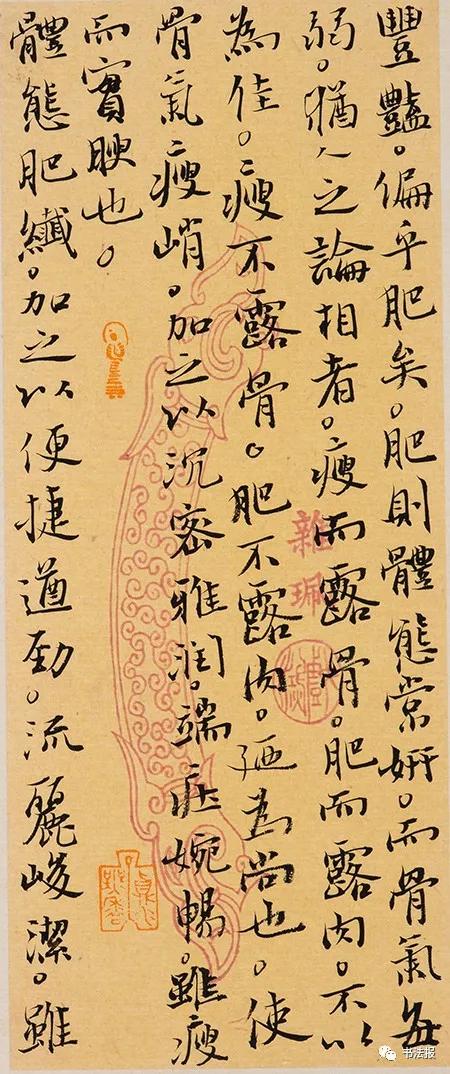 豐豔。偏乎肥矣。肥則體態常妍。而骨氣每
弱。猶人之論相者。瘦而露骨。肥而露肉。不以
為佳。瘦不露骨。肥不露肉。廼為尚也。使
骨氣瘦峭。加之以沉密雅潤。端庄婉暢。雖瘦
而實腴也。
體態肥纖。加之以便捷遒勁。流麗峻潔。雖
雜珮
书法报